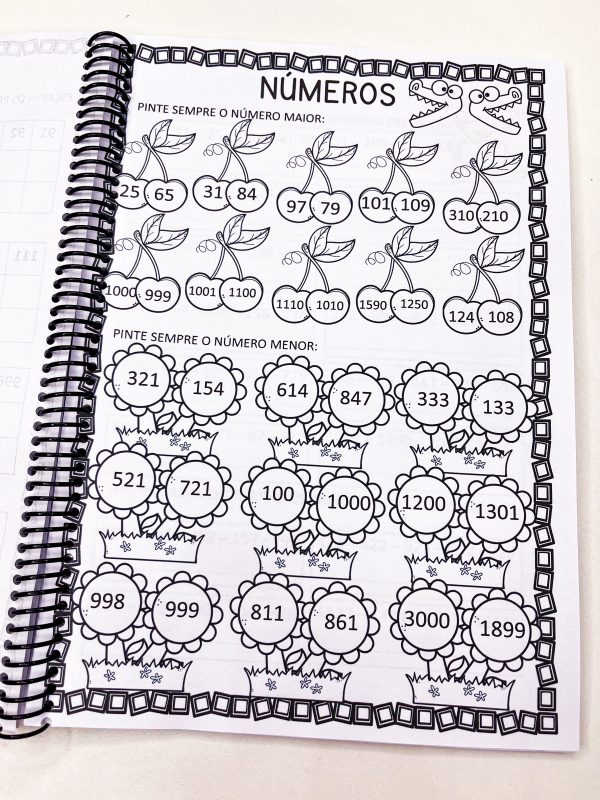 NÚMEROS
PINTE SEMPRE O NÚMERO MAIOR:
25 65 31 84 97 79 101 109 310 210
1000 999 1001 1100 1110 1010 1590 1250 124 108
PINTE SEMPRE O NÚMERO MENOR:
321 154 614 847 333 133
521 721 100 1000 1200 1301
998 999 811 861 3000 1899
91 92
111